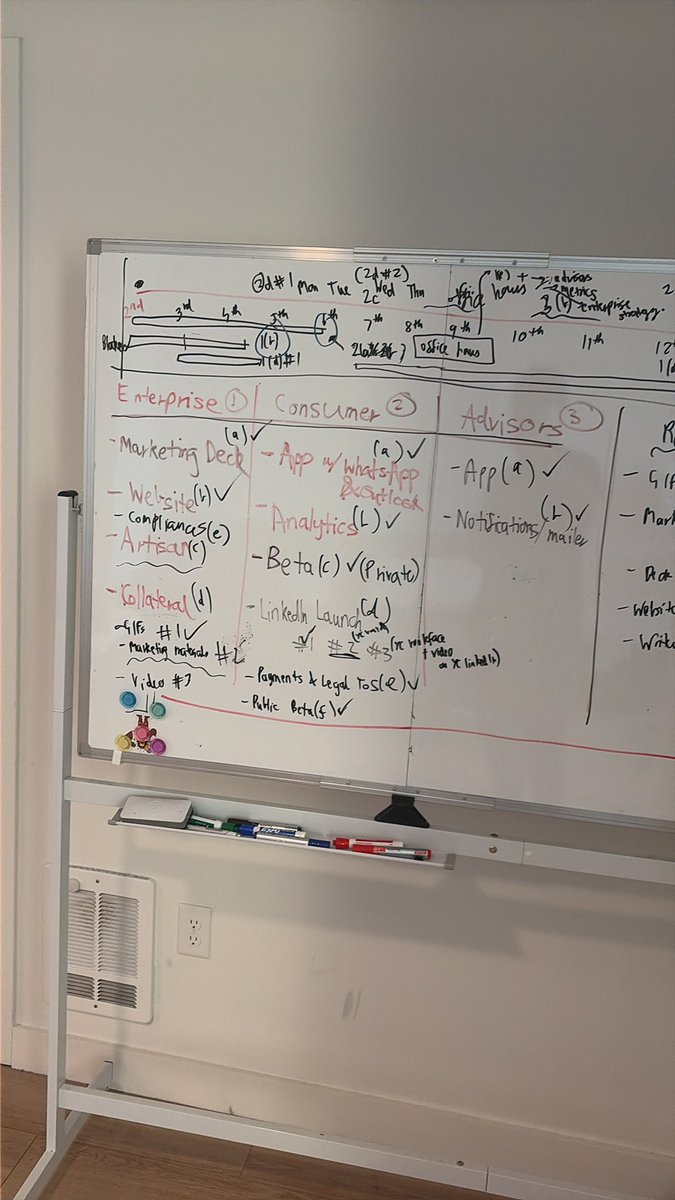 2d#1 Mon Tue (2d#2) Wed Thu
2c
hours
advisors
metrics
3 (b) enterprise
strategy.
2nd 3rd 4th 5th 6th 7th 8th 9th 10th 11th 12th
Blake
1(b)
1(d)#1
office hours
1(d
Enterprise 1
- Marketing Deck (a) ✓
- Website (b) ✓
- Compliances (e)
- Artisan (c)
- Kollateral (d)
- GIFs #1 ✓
- Marketing materials #2
- Video #3
Consumer 2
- App w/ WhatsApp (a) ✓
& Outlook
- Analytics (b) ✓
- Beta (c) ✓ (Private)
- LinkedIn Launch (d)
#1 ✓ #2 #3
+ video
- Payments & Legal ToS (e) ✓
- Public Beta (f) ✓
Advisors 3
- App (a) ✓
- Notifications/ (b) ✓
mailer
- GIF
- Mark
- Website
- Write